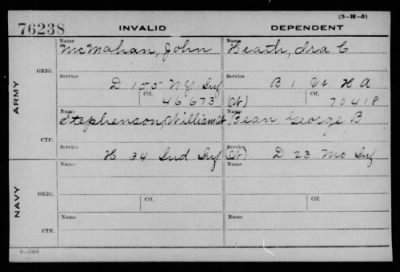 (3-W-5)
76238 INVALID DEPENDENT
Name Name
McMahan, John Heath, Ira C
ORIG. Service Service
D 155 NY Inf B 1 Vt. H A
Ctf. Ctf.
ARMY 46673 (Vt) 70418
Name Name
Stephenson, William Bean George B
CTF. Service Service
H 34 Ind Inf D 23 Mo Inf
Name Name
NAVY ORIG. Ctf. Ctf.
Name Name
CTF.